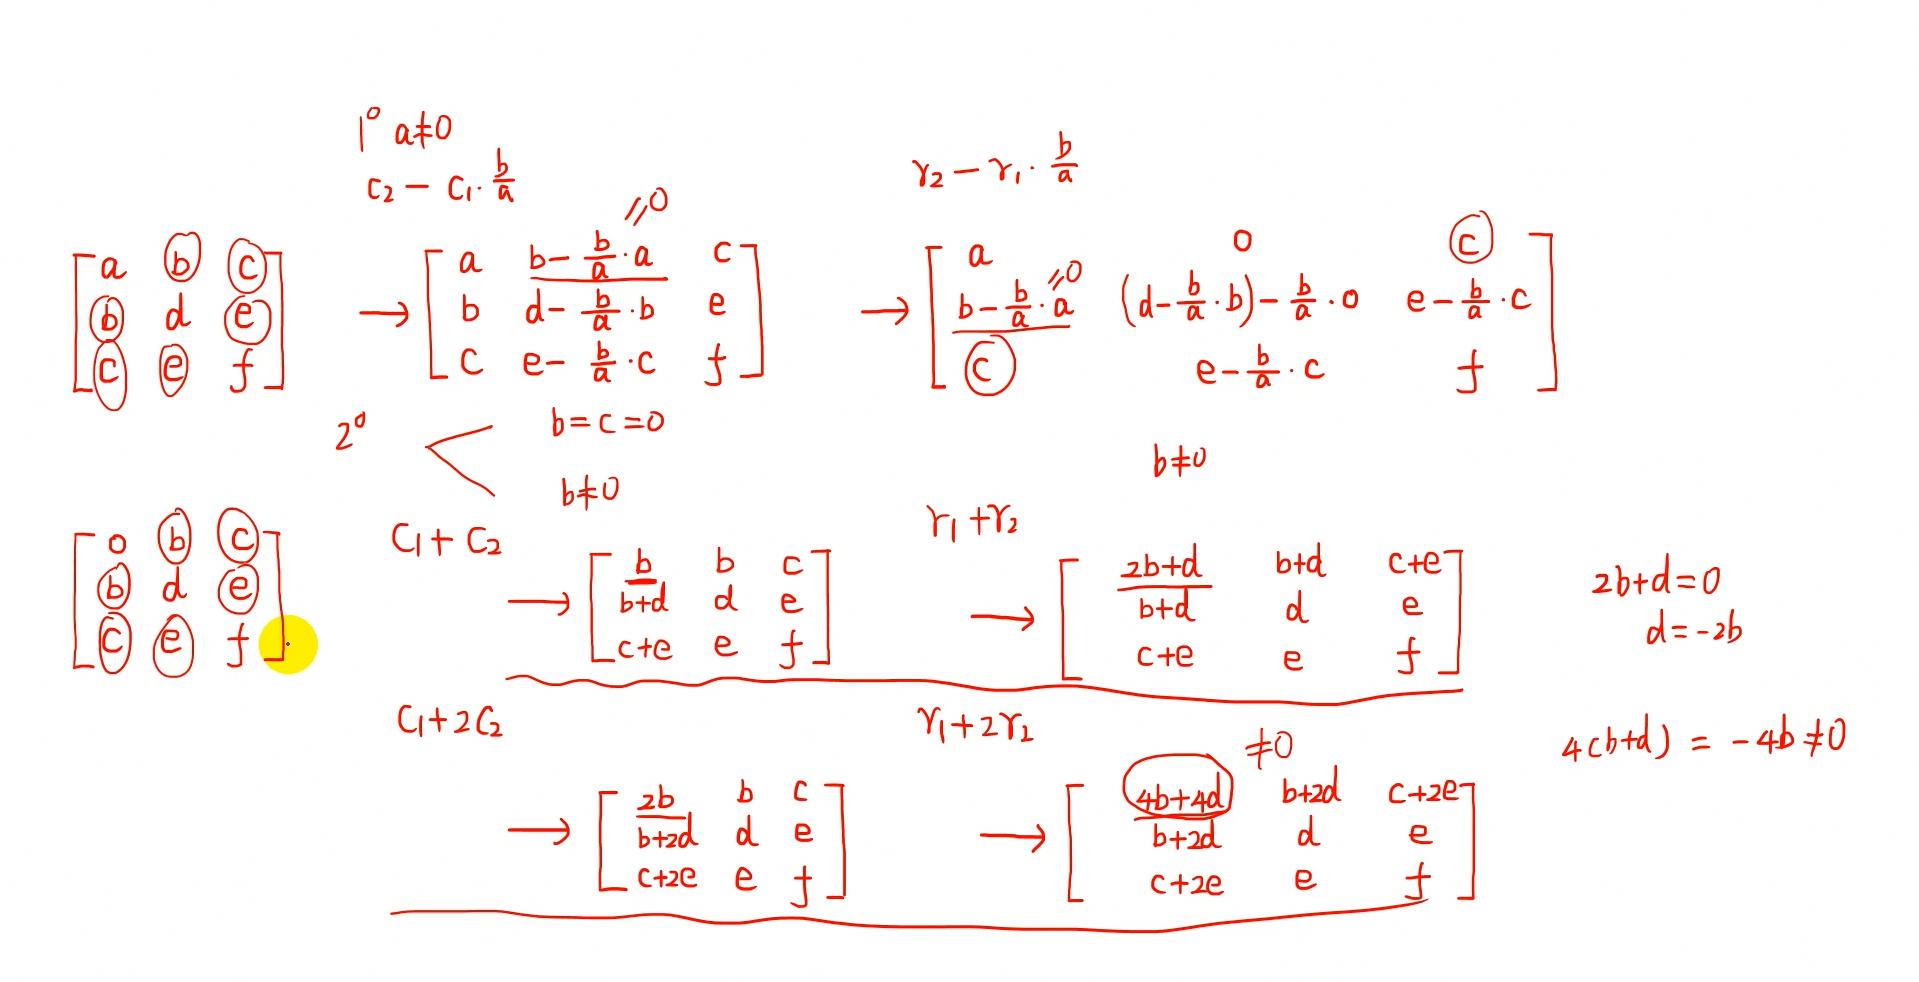 1° a≠0
c₂ - c₁·b/a
r₂ - r₁·b/a
[a b c; b d e; c e f] → [a b-b/a·a c; b d-b/a·b e; c e-b/a·c f] → [a 0 c; b-b/a·a (d-b/a·b)-b/a·0 e-b/a·c; c e-b/a·c f]
=0
=0
2° b=c=0
b≠0
b≠0
C₁+C₂
r₁+r₂
[0 b c; b d e; c e f] → [b b c; b+d d e; c+e e f] → [2b+d b+d c+e; b+d d e; c+e e f]
2b+d=0
d=-2b
C₁+2C₂
r₁+2r₂
≠0
4(b+d) = -4b≠0
→ [2b b c; b+2d d e; c+2e e f] → [4b+4d b+2d c+2e; b+2d d e; c+2e e f]